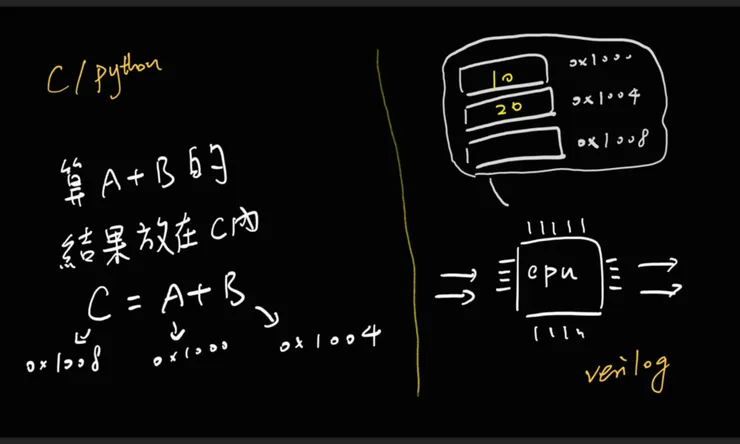 C/python
算 A+B 的
結果放在 C 內
C = A+B
0x1008 0x1000 0x1004
10 0x1000
20 0x1004
0x1008
cpu
verilog